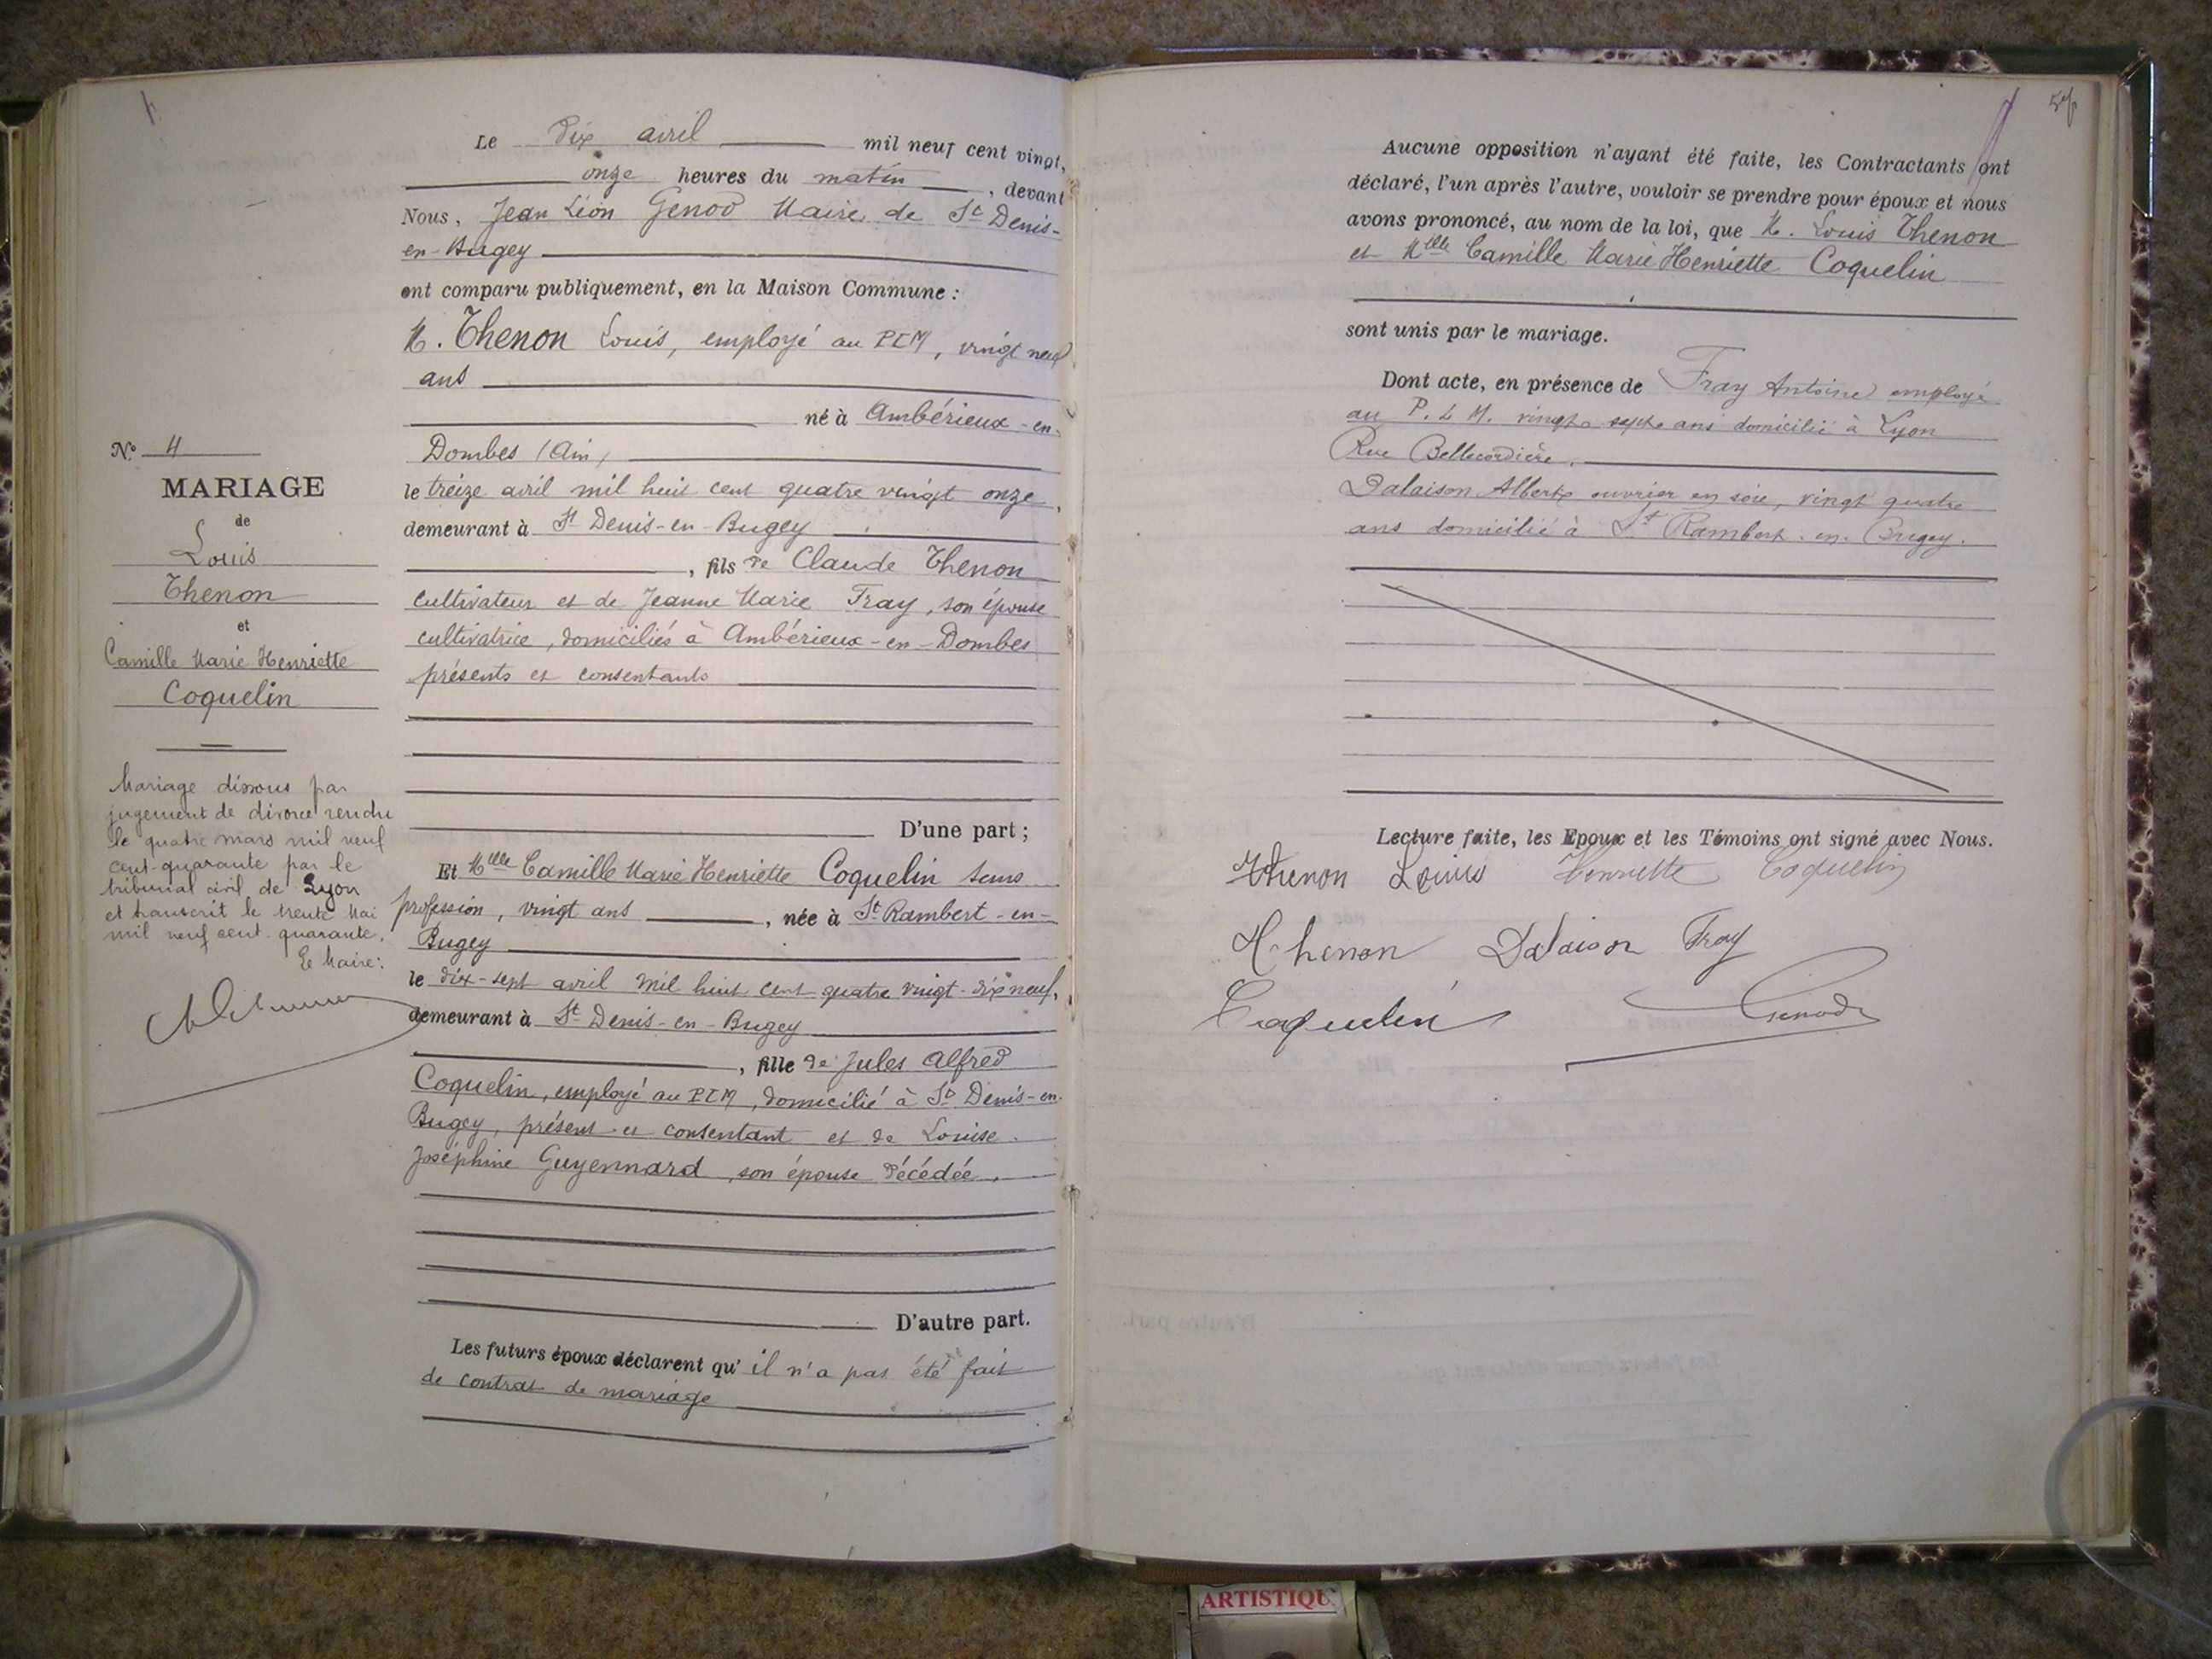 Le dix avril mil neuf cent vingt,
onze heures du matin, devant
Nous, Jean Léon Genod Maire de St Denis-
en-Bugey
ont comparu publiquement, en la Maison Commune :
M. Thenon Louis, employé au PLM, vingt neuf
ans
né à Ambérieux-en-
Dombes (Ain)
le treize avril mil huit cent quatre vingt onze,
demeurant à St Denis-en-Bugey
, fils de Claude Thenon
cultivateur et de Jeanne Marie Fray, son épouse
cultivatrice, domiciliés à Ambérieux-en-Dombes
présents et consentants
D'une part ;
Et Mlle Camille Marie Henriette Coquelin sans
profession, vingt ans, née à St Rambert-en-
Bugey
le dix-sept avril mil huit cent quatre vingt-dix neuf,
demeurant à St Denis-en-Bugey
, fille de Jules Alfred
Coquelin, employé au PLM, domicilié à St Denis-en-
Bugey, présent et consentant et de Louise
Joséphine Guyennard, son épouse décédée.
D'autre part.
Les futurs époux déclarent qu'il n'a pas été fait
de contrat de mariage
No 4
MARIAGE
de
Louis
Thenon
et
Camille Marie Henriette
Coquelin
Mariage dissous par
jugement de divorce rendu
le quatre mars mil neuf
cent quarante par le
tribunal civil de Lyon
et transcrit le trente Mai
mil neuf cent quarante.
Le Maire :
Aucune opposition n'ayant été faite, les Contractants ont
déclaré, l'un après l'autre, vouloir se prendre pour époux et nous
avons prononcé, au nom de la loi, que M. Louis Thenon
et Mlle Camille Marie Henriette Coquelin
sont unis par le mariage.
Dont acte, en présence de Fray Antoine employé
au P. L. M. vingt-sept ans domicilié à Lyon
Rue Bellecordière.
Dalaison Albert ouvrier en soie, vingt quatre
ans domicilié à St Rambert-en-Bugey.
Lecture faite, les Epoux et les Témoins ont signé avec Nous.
Thenon Louis Henriette Coquelin
Thenon Dalaison Fray
Coquelin Genod
ARTISTIQU